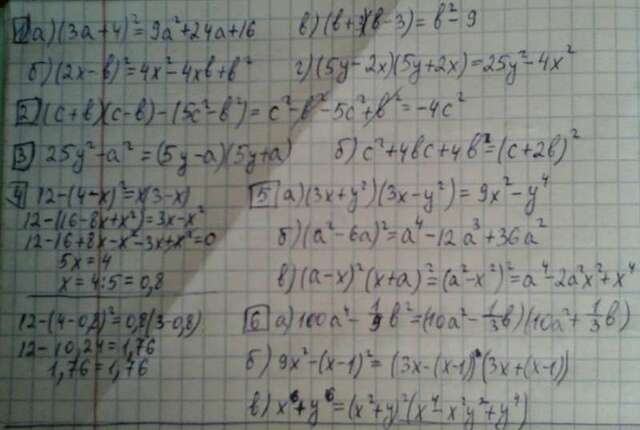 1 а) (3a+4)²=9a²+24a+16
в) (в+3)(в-3)=в²-9
б) (2x-в)²=4x²-4xв+в²
г) (5y-2x)(5y+2x)=25y²-4x²
2 (с+в)(с-в)-(5с²-в²)=с²-в²-5с²+в²=-4с²
3) 25y²-a²=(5y-a)(5y+a)
б) с²+4вс+4в²=(с+2в)²
4 12-(4-x)²=x(3-x)
12-(16-8x+x²)=3x-x²
12-16+8x-x²-3x+x²=0
5x=4
x=4:5=0,8
12-(4-0,8)²=0,8(3-0,8)
12-10,24=1,76
1,76=1,76
5 а) (3x+y²)(3x-y²)=9x²-y⁴
б) (a²-6a)²=a⁴-12a³+36a²
в) (a-x)²(x+a)²=(a²-x²)²=a⁴-2a²x²+x⁴
6 а) 100a⁴-1/9в²=(10a²-1/3в)(10a²+1/3в)
б) 9x²-(x-1)²=(3x-(x-1))(3x+(x-1))
в) x⁶+y⁶=(x²+y)²(x⁴-x²y²+y⁴)